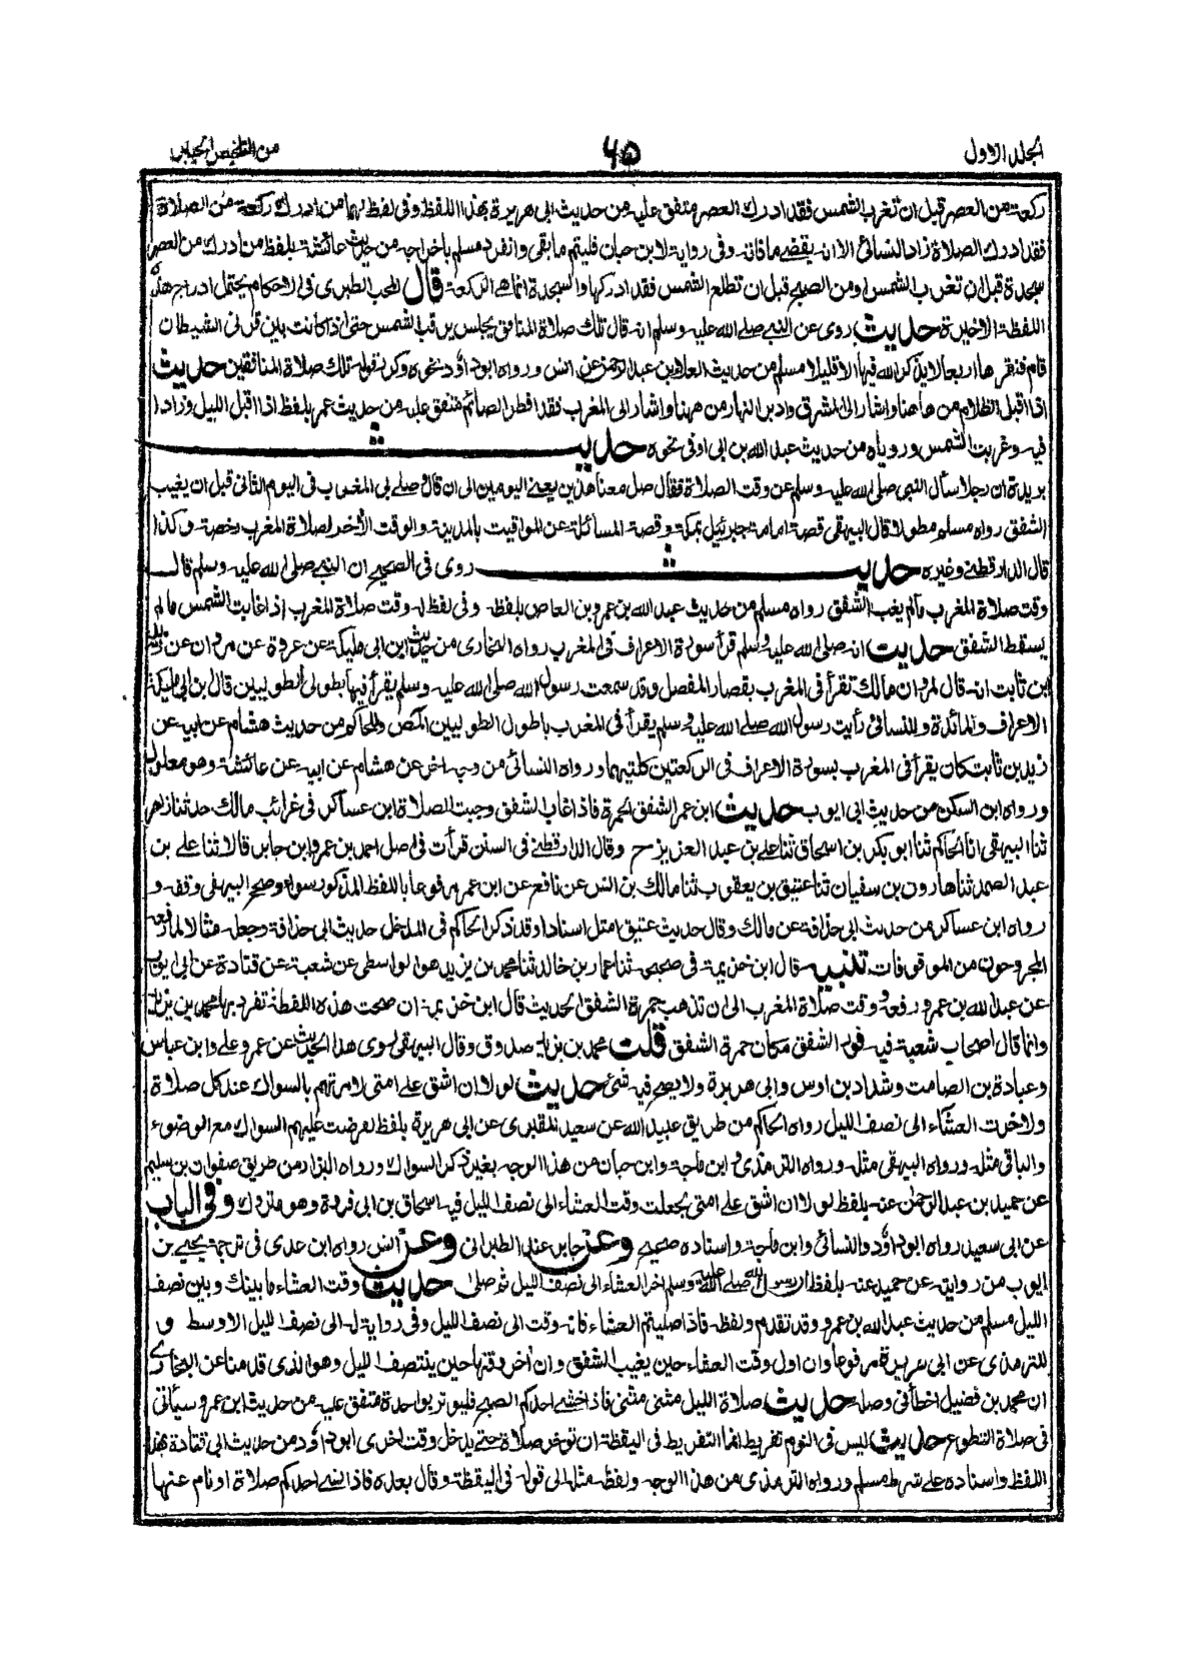 الجلد الاول
٦٥
من التلخيص الحبير
ركعة من العصر قبل ان تغرب الشمس فقد ادرك العصر متفق عليه من حديث ابي هريرة بهذا اللفظ وفي لفظ لهما من ادرك ركعة من الصلاة
فقد ادرك الصلاة زاد النسائي الا انه يقضي ما فاته وفي رواية لابن حبان فليتم ما بقي وانفرد مسلم باخراجه من حديث عائشة بلفظ من ادرك من العصر
سجدة قبل ان تغرب الشمس او من الصبح قبل ان تطلع الشمس فقد ادركها والسجدة انما هي الركعة قال المحب الطبري في الاحكام يحتمل ادراج هذه
اللفظة الاخيرة حديث روى عن النبي صلى الله عليه وسلم انه قال تلك صلاة المنافق يجلس يرقب الشمس حتى اذا كانت بين قرني الشيطان
قام فنقرها اربعا لا يذكر الله فيها الا قليلا مسلم من حديث العلاء بن عبد الرحمن عن انس ورواه ابو داؤد نحوه وكرر قوله تلك صلاة المنافقين حديث
اذا اقبل الظلام من هاهنا واشار الى المشرق وادبر النهار من ههنا واشار الى المغرب فقد افطر الصائم متفق عليه من حديث عمر بلفظ اذا اقبل الليل وزادا
فيه وغربت الشمس ورو ياه من حديث عبد الله بن ابي اوفى نحوه حديث
بريدة ان رجلا سأل النبي صلى الله عليه وسلم عن وقت الصلاة فقال صل معنا هذين يعني اليومين الى ان قال صلى بي المغرب في اليوم الثاني قبل ان يغيب
الشفق رواه مسلم مطولا قال البيهقي قصة امامة جبرئيل بمكة وقصة المسائلة عن المواقيت بالمدينة والوقت الآخر لصلاة المغرب رخصة وكذا
قال الدارقطني وغيره حديث روى في الصحيح ان النبي صلى الله عليه وسلم قال
وقت صلاة المغرب ما لم يغب الشفق رواه مسلم من حديث عبد الله بن عمرو بن العاص بلفظه وفي لفظ له وقت صلاة المغرب اذا غابت الشمس ما لم
يسقط الشفق حديث انه صلى الله عليه وسلم قرأ سورة الاعراف في المغرب رواه البخاري من حديث ابن ابي مليكة عن عروة عن مروان عن زيد
ابن ثابت انه قال لمروان مالك تقرأ في المغرب بقصار المفصل وقد سمعت رسول الله صلى الله عليه وسلم يقرأ فيها بطولى الطوليين قال ابن ابي مليكة
الاعراف والمائدة وللنسائي رأيت رسول الله صلى الله عليه وسلم يقرأ في المغرب باطول الطوليين المص وللحاكم من حديث هشام عن ابيه عن
زيد بن ثابت كان يقرأ في المغرب بسورة الاعراف في الركعتين كلتيهما ورواه النسائي من وجه اخر عن هشام عن ابيه عن عائشة وهو معلول
ورواه ابن السكن من حديث ابي ايوب حديث ابن عمر الشفق الحمرة فاذا غاب الشفق وجبت الصلاة ابن عساكر في غرائب مالك حدثنا زاهر
ثنا البيهقي انا الحاكم ثنا ابو بكر بن اسحاق ثنا علي بن عبد العزيز ح وقال الدارقطني في السنن قرأت في اصل احمد بن عمرو بن جابر قالا ثنا علي بن
عبد الصمد ثنا هارون بن سفيان ثنا عتيق بن يعقوب ثنا مالك بن انس عن نافع عن ابن عمر مرفوعا باللفظ المذكور سواء وصحح البيهقي وقفه و
رواه ابن عساكر من حديث ابي حذافة عن مالك وقال حديث عتيق امثل اسنادا وقد ذكر الحاكم في المدخل حديث ابي حذافة وجعله مثالا لما رفعه
المجروحون من الموقوفات تنبيه قال ابن خزيمة في صحيحه ثنا عمار بن خالد ثنا محمد بن يزيد هو الواسطي عن شعبة عن قتادة عن ابي ايوب
عن عبد الله بن عمرو رفعه وقت صلاة المغرب الى ان تذهب حمرة الشفق الحديث قال ابن خزيمة ان صحت هذه اللفظة تفرد بها محمد بن يزيد
وانما قال اصحاب شعبة فيه فور الشفق مكان حمرة الشفق قلت محمد بن يزيد صدوق وقال البيهقي روى هذا الحديث عن عمر وعلي وابن عباس
وعبادة بن الصامت وشداد بن اوس وابي هريرة ولا يصح فيه شئ حديث لولا ان اشق على امتي لامرتهم بالسواك عند كل صلاة
ولاخرت العشاء الى نصف الليل رواه الحاكم من طريق عبيد الله عن سعيد المقبري عن ابي هريرة بلفظ لفرضت عليهم السواك مع الوضوء
والباقي مثله ورواه البيهقي مثله ورواه الترمذي وابن ماجة وابن حبان من هذا الوجه بغير ذكر السواك ورواه البزار من طريق صفوان بن سليم
عن حميد بن عبد الرحمن عنه بلفظ لولا ان اشق على امتي لجعلت وقت العشاء الى نصف الليل فيه اسحاق بن ابي فروة وهو متروك وفي الباب
عن ابي سعيد رواه ابو داؤد والنسائي وابن ماجة واسناده صحيح وعن جابر عند الطبراني وعن انس رواه ابن عدي في ترجمة يحيى بن
ايوب من روايته عن حميد عنه بلفظ ان رسول الله صلى الله عليه وسلم اخر العشاء الى نصف الليل ثم صلى حديث وقت العشاء ما بينك وبين نصف
الليل مسلم من حديث عبد الله بن عمرو وقد تقدم ولفظه فاذا صليتم العشاء فانه وقت الى نصف الليل وفي رواية له الى نصف الليل الاوسط و
للترمذي عن ابي هريرة مرفوعا وان اول وقت العشاء حين يغيب الشفق وان اخر وقتها حين ينتصف الليل وهو الذي قدمنا عن البخاري
ان محمد بن فضيل اخطأ في وصله حديث صلاة الليل مثنى مثنى فاذا خشى احدكم الصبح فليوتر بواحدة متفق عليه من حديث ابن عمر وسيأتي
في صلاة التطوع حديث ليس في النوم تفريط انما التفريط في اليقظة ان تؤخر صلاة حتى يدخل وقت اخرى ابو داؤد من حديث ابي قتادة بهذا
اللفظ واسناده على شرط مسلم ورواه الترمذي من هذا الوجه ولفظه مثله الى قوله في اليقظة وقال بعده فاذا نسي احدكم صلاة او نام عنها